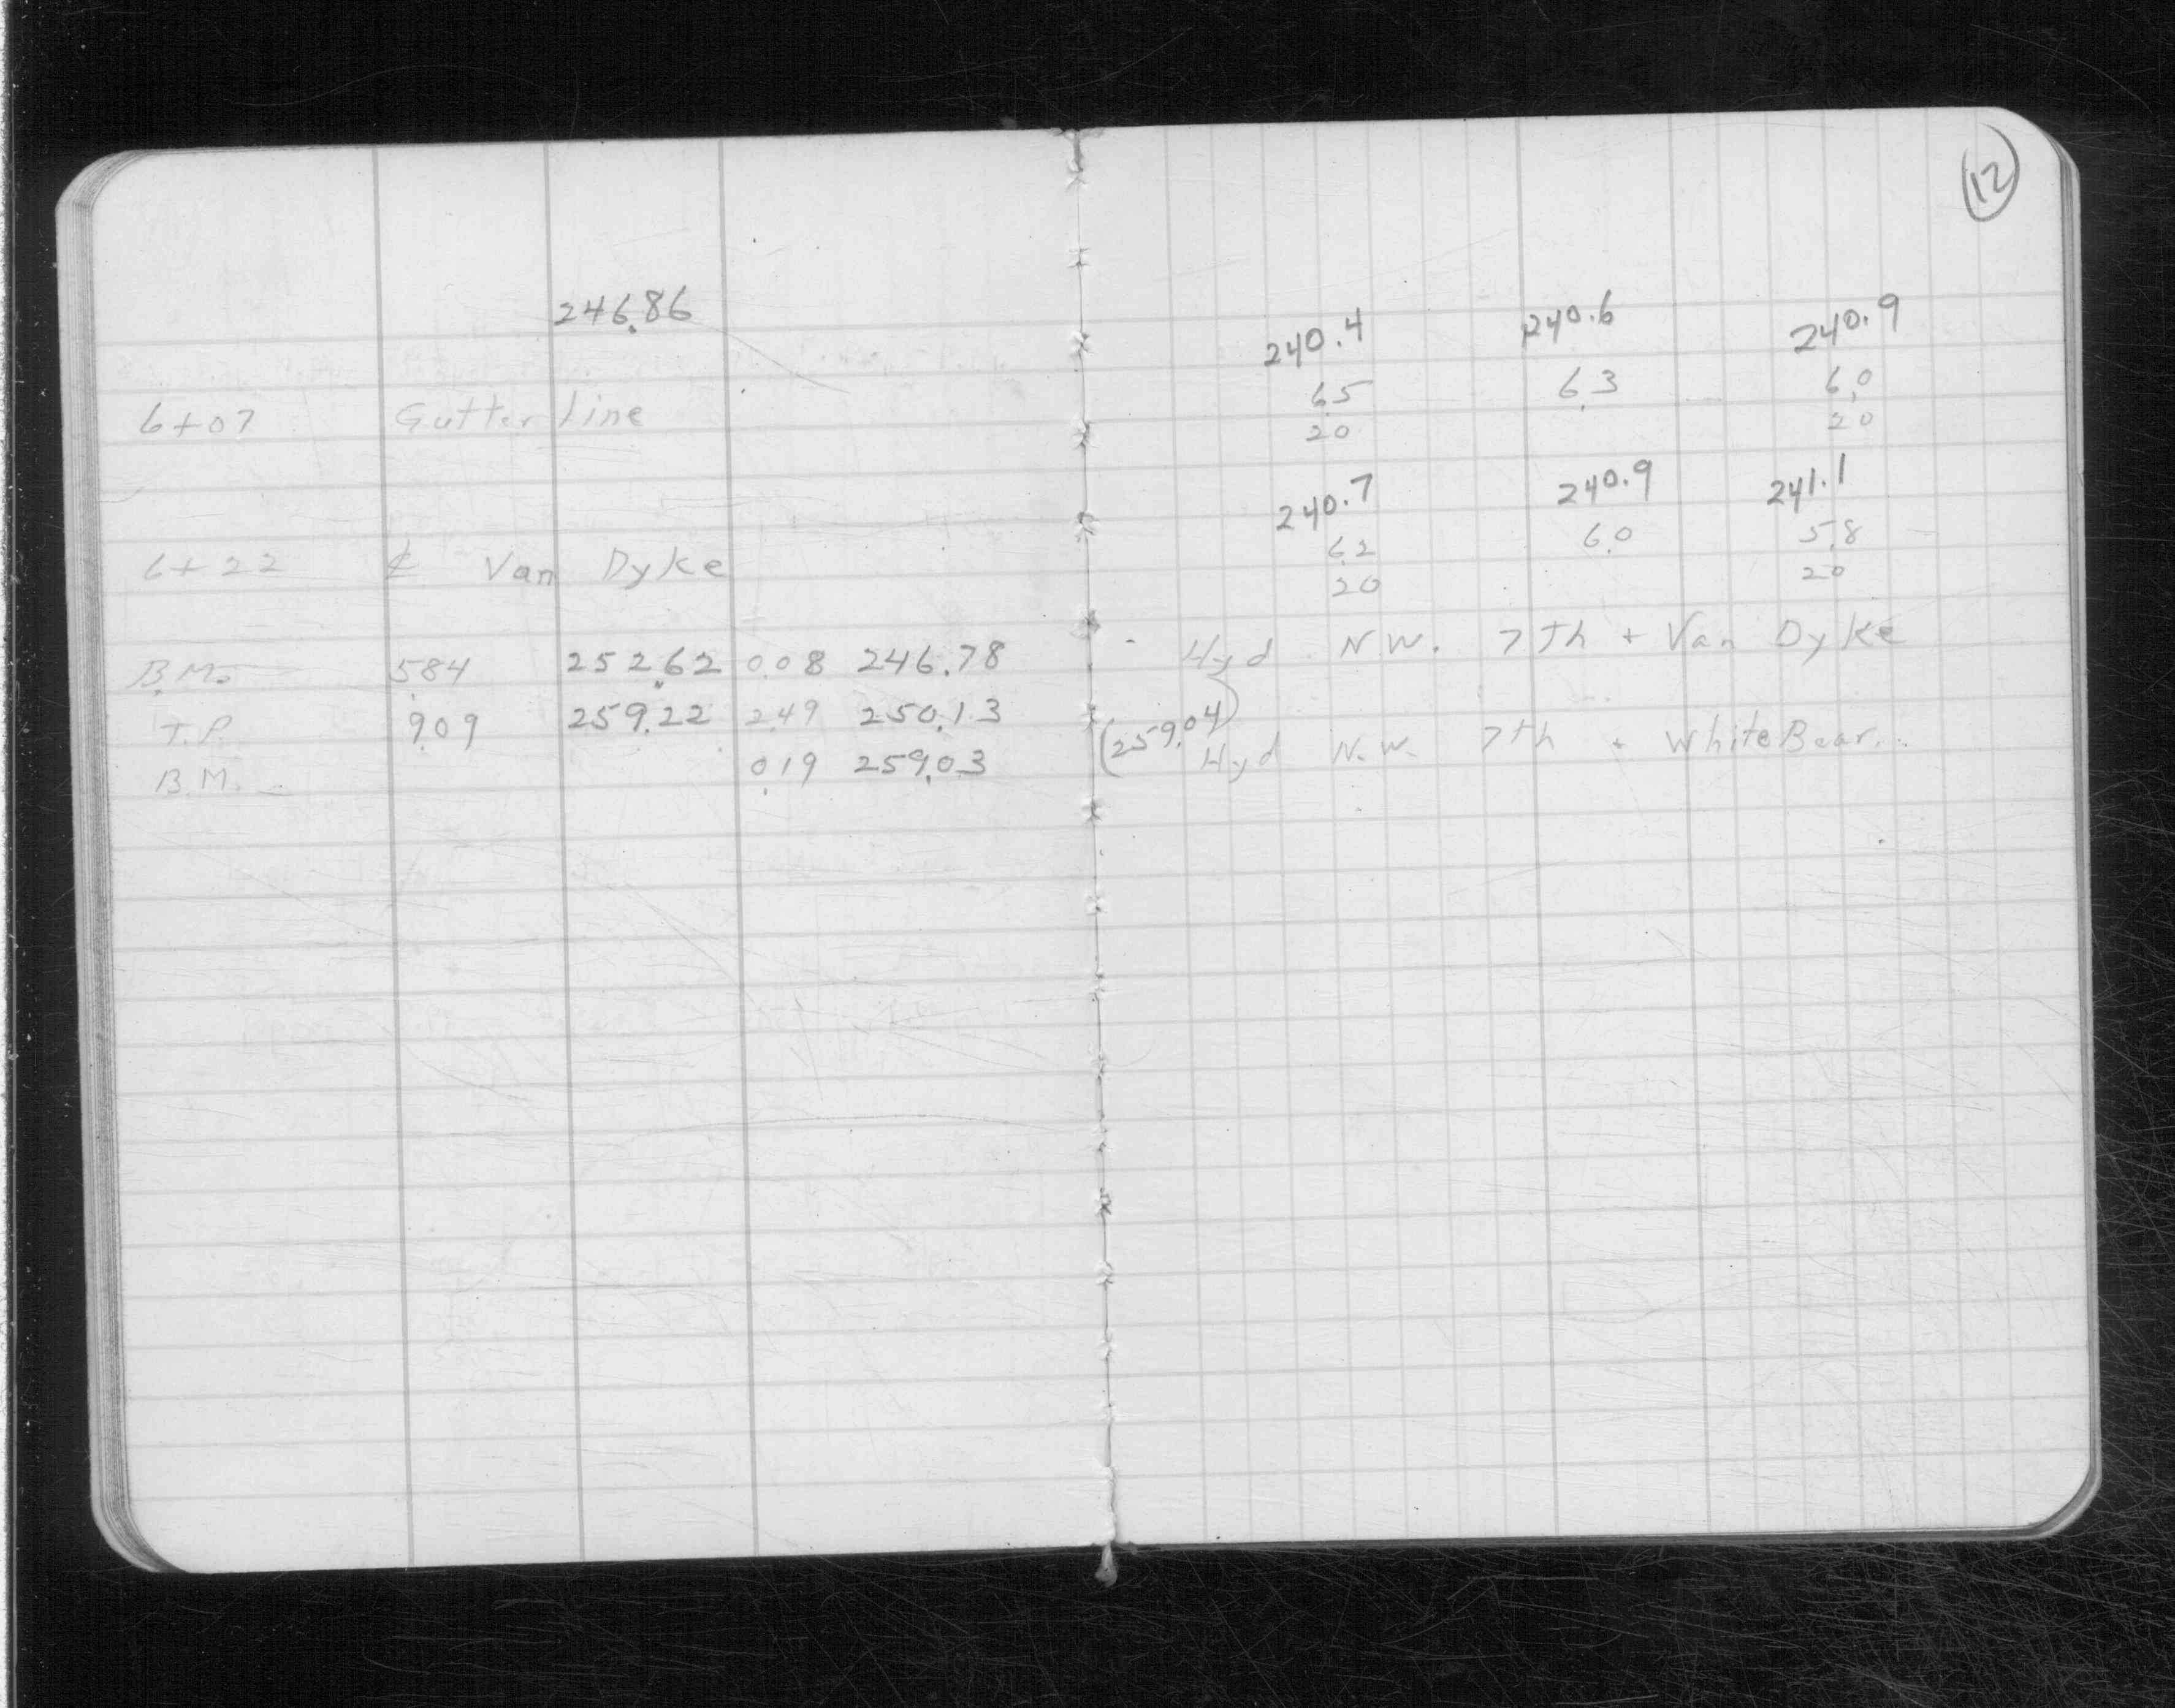 12
246.86
240.4 240.6 240.9
6.5 6.3 6.0
6+07 Gutter line
20 20
240.7 240.9 241.1
6.2 6.0 5.8
6+22 ℄ Van Dyke
20 20
B.M. 5.84 252.62 0.08 246.78 Hyd N.W. 7th + Van Dyke
T.P. 9.09 259.22 2.49 250.13
B.M. 0.19 259.03 (259.04) Hyd N.W. 7th + White Bear.